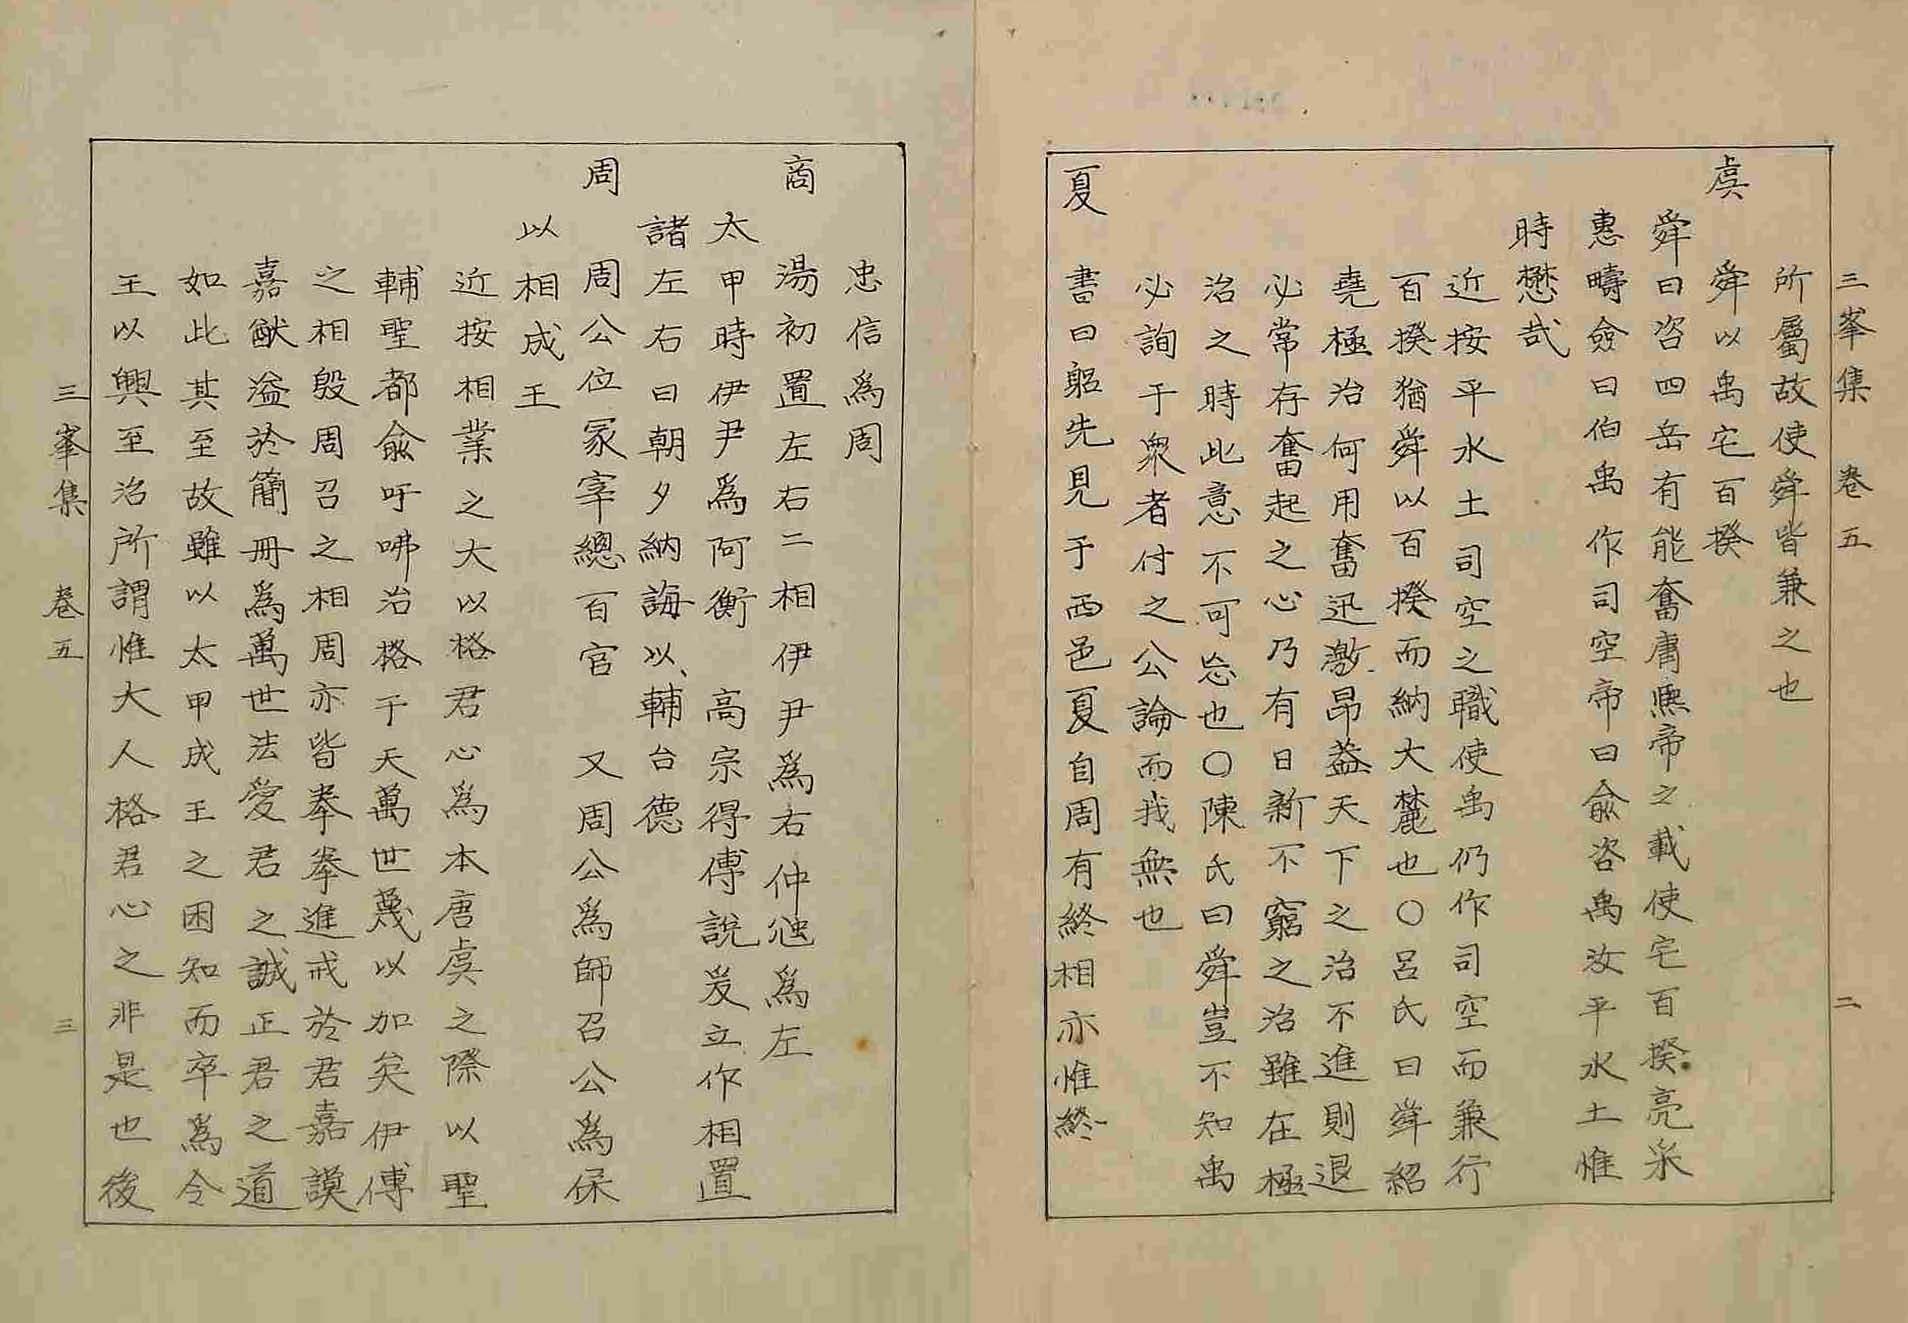 三峯集 卷五 二
所屬故使舜皆兼之也
虞 舜以禹宅百揆
舜曰咨四岳有能奮庸熙帝之載使宅百揆亮采
惠疇僉曰伯禹作司空帝曰俞咨禹汝平水土惟
時懋哉
近按平水土司空之職使禹仍作司空而兼行
百揆猶舜以百揆而納大麓也〇呂氏曰舜紹
堯極治何用奮迅激昂蓋天下之治不進則退
必常存奮起之心乃有日新不窮之治雖在極
治之時此意不可忘也〇陳氏曰舜豈不知禹
必詢于衆者付之公論而我無也
夏 書曰躬先見于西邑夏自周有終相亦惟終
忠信爲周
商 湯初置左右二相伊尹爲右仲虺爲左
太甲時伊尹爲阿衡 高宗得傅說爰立作相置
諸左右曰朝夕納誨以輔台德
周 周公位冢宰總百官 又周公爲師召公爲保
以相成王
近按相業之大以格君心爲本唐虞之際以聖
輔聖都兪吁咈治格于天萬世蔑以加矣伊傅
之相殷周召之相周亦皆拳拳進戒於君嘉謨
嘉猷溢於簡冊爲萬世法愛君之誠正君之道
如此其至故雖以太甲成王之困知而卒爲令
王以興至治所謂惟大人格君心之非是也後
三峯集 卷五 三